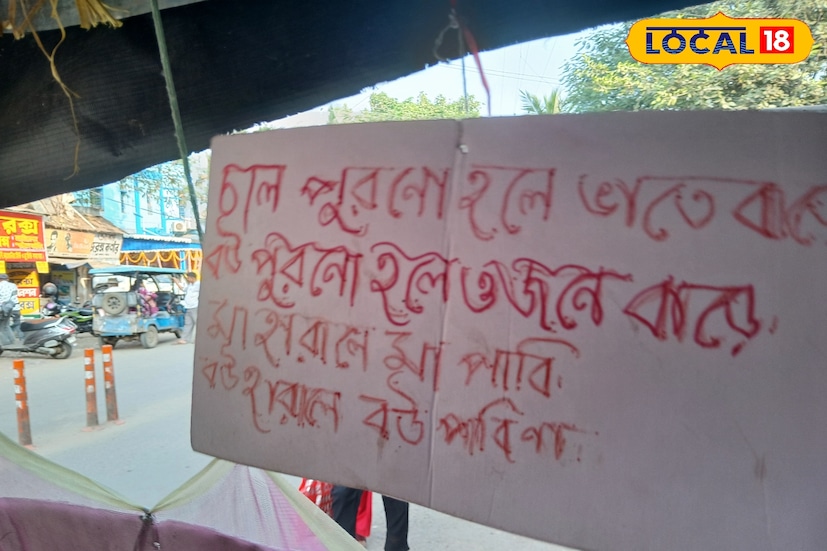 LOCAL 18
চাল পুরনো হলে ভাতে বাড়ে
বউ পুরনো হলে ওজনে বাড়ে.
মা হারালে মা পাবি
বউ হারালে বউ পাবিনা